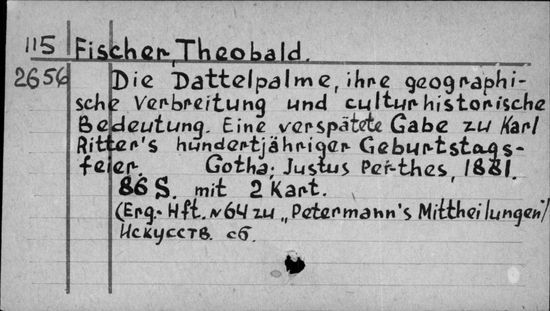 115 Fischer, Theobald.
2656 Die Dattelpalme, ihre geographi-
sche Verbreitung und culturhistorische
Bedeutung. Eine verspätete Gabe zu Karl
Ritter's hundertjähriger Geburtstags-
feier. Gotha; Justus Perthes, 1881.
86 S. mit 2 Kart.
(Erg.-Hft. N 64 zu „Petermann's Mittheilungen"/
Искусств. сб.